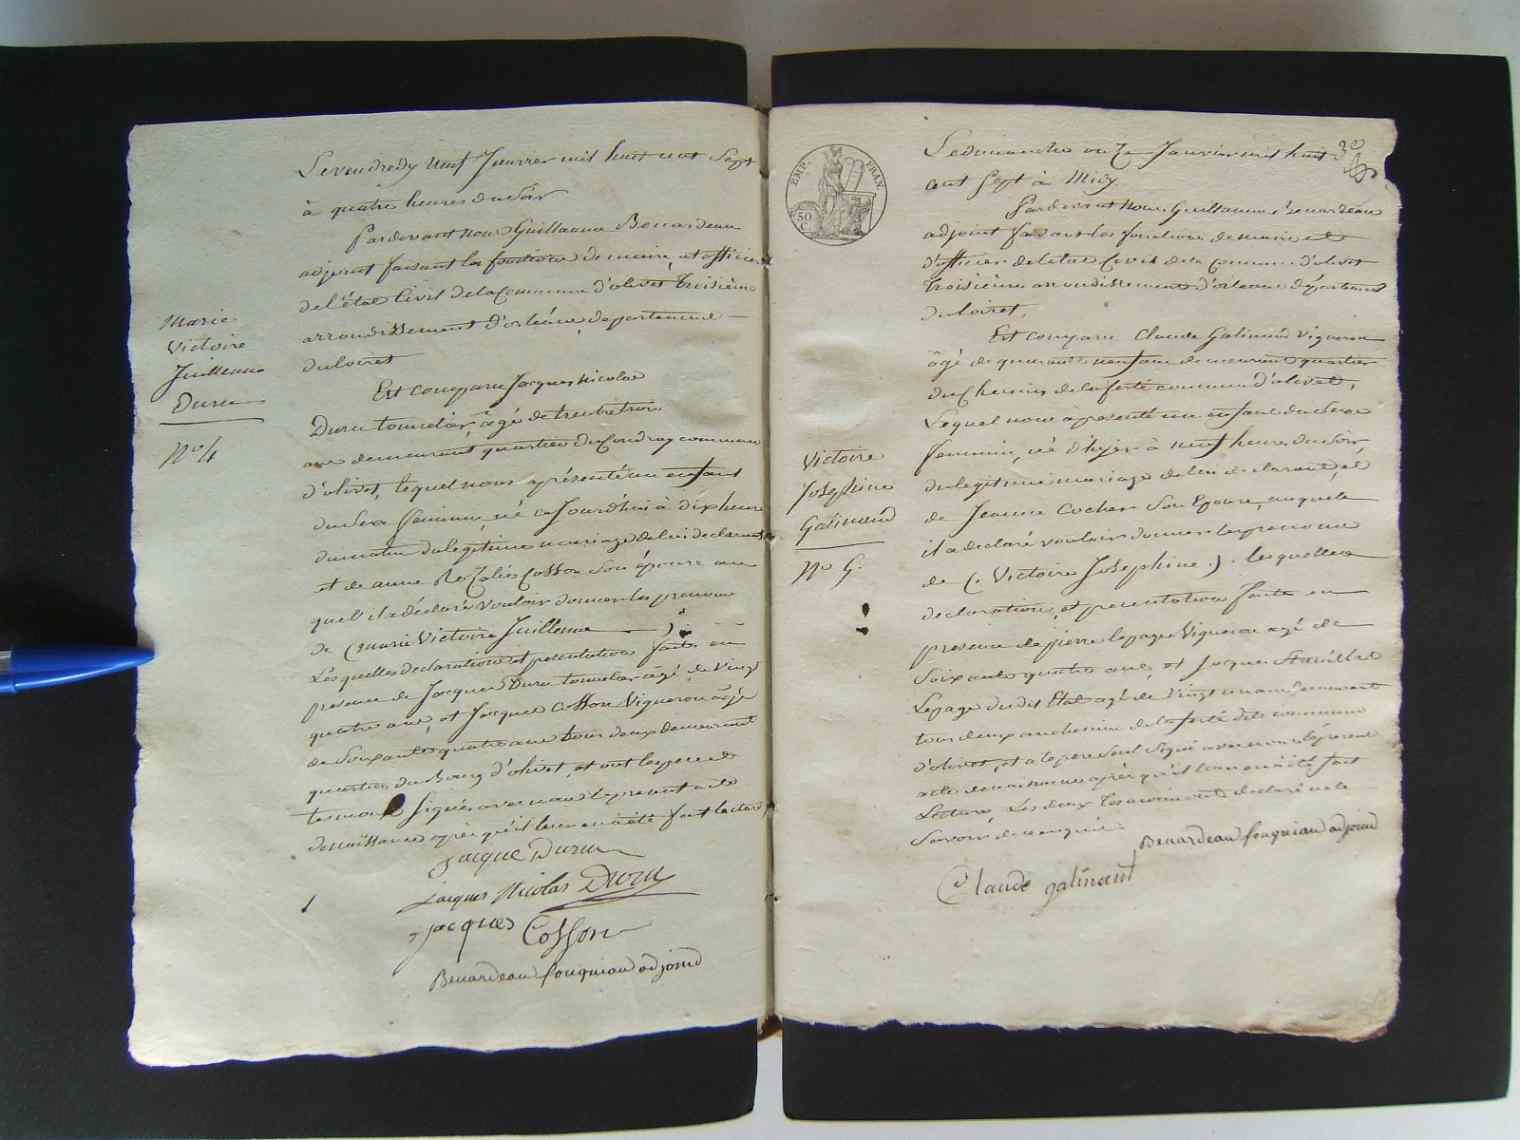 Le vendredy neuf Janvier mil huit cent Sept
à quatre heures du Soir
Pardevant nous Guillaume Benardeau
adjoint faisant les fonctions de maire, et officier
de l'état Civil de la Commune d'olivet troisième
arrondissement d'orléans, departement
du loiret
Est comparu Jacques Nicolas
Duru tonnelier, âgé de trente trois
ans demeurant quartier du Coudray commune
d'olivet, lequel nous a présenté un enfant
du Sexe feminin, né ce Jourd'hui à dix heures
du matin du legitime mariage de lui declarant
et de anne Rozalie Cosson Son épouse au
quel il a déclaré vouloir donner les prenoms
de (marie Victoire Juillenne)
Lesquelles declaration et presentation faites en
presence de Jacques Duru tonnelier âgé de Vingt
quatre ans, et Jacques Cosson Vigneron âgé
de Soixante quatre ans tous deux demeurant
quartier du Bourg d'olivet, et ont les pere et
temoins Signés avec nous le present acte
de naissance après qu'il leur en a été fait lecture
Marie
Victoire
Juillenne
Duru
No 4
jacque Duru
jacques Nicolas Duru
jacques Cosson
Benardeau fouqniau adjoind
30
EMP. FRAN
50
C.
Le dimanche onze Janvier mil huit
cent Sept à Midy
Pardevant nous Guillaume Benardeau
adjoint faisant les fonctions de maire et
d'officier de l'état Civil de la Commune d'olivet
troisième arrondissement d'orleans département
du loiret,
Est comparu Claude Galimand Vigneron
âgé de quarante neuf ans demeurant quartier
du Chemin de la ferté commune d'olivet,
Lequel nous a presenté un enfant du Sexe
feminin, né d'hyer à neuf heures du Soir
du legitime mariage de lui declarant, et
de Jeanne Cocher Son Epouse, auquel
il a declaré vouloir donner les prenoms
de (Victoire Josephine). lesquelles
declaration, et presentation faites en
presence de pierre lepage Vigneron agé de
Soixante quatre ans, et Jacques
Lepage du dit Etat agé de Vingt un ans demeurant
tous deux au chemin de la ferté dite commune
d'olivet, et a le pere Seul Signé avec nous le présent
acte de naissance après qu'il leur en a été fait
Lecture, Les deux temoins ont declaré ne le
Savoir de ce enquis.
Victoire
Josephine
Galimand
No 5.
Benardeau fouqniau adjoind
Claude galimant